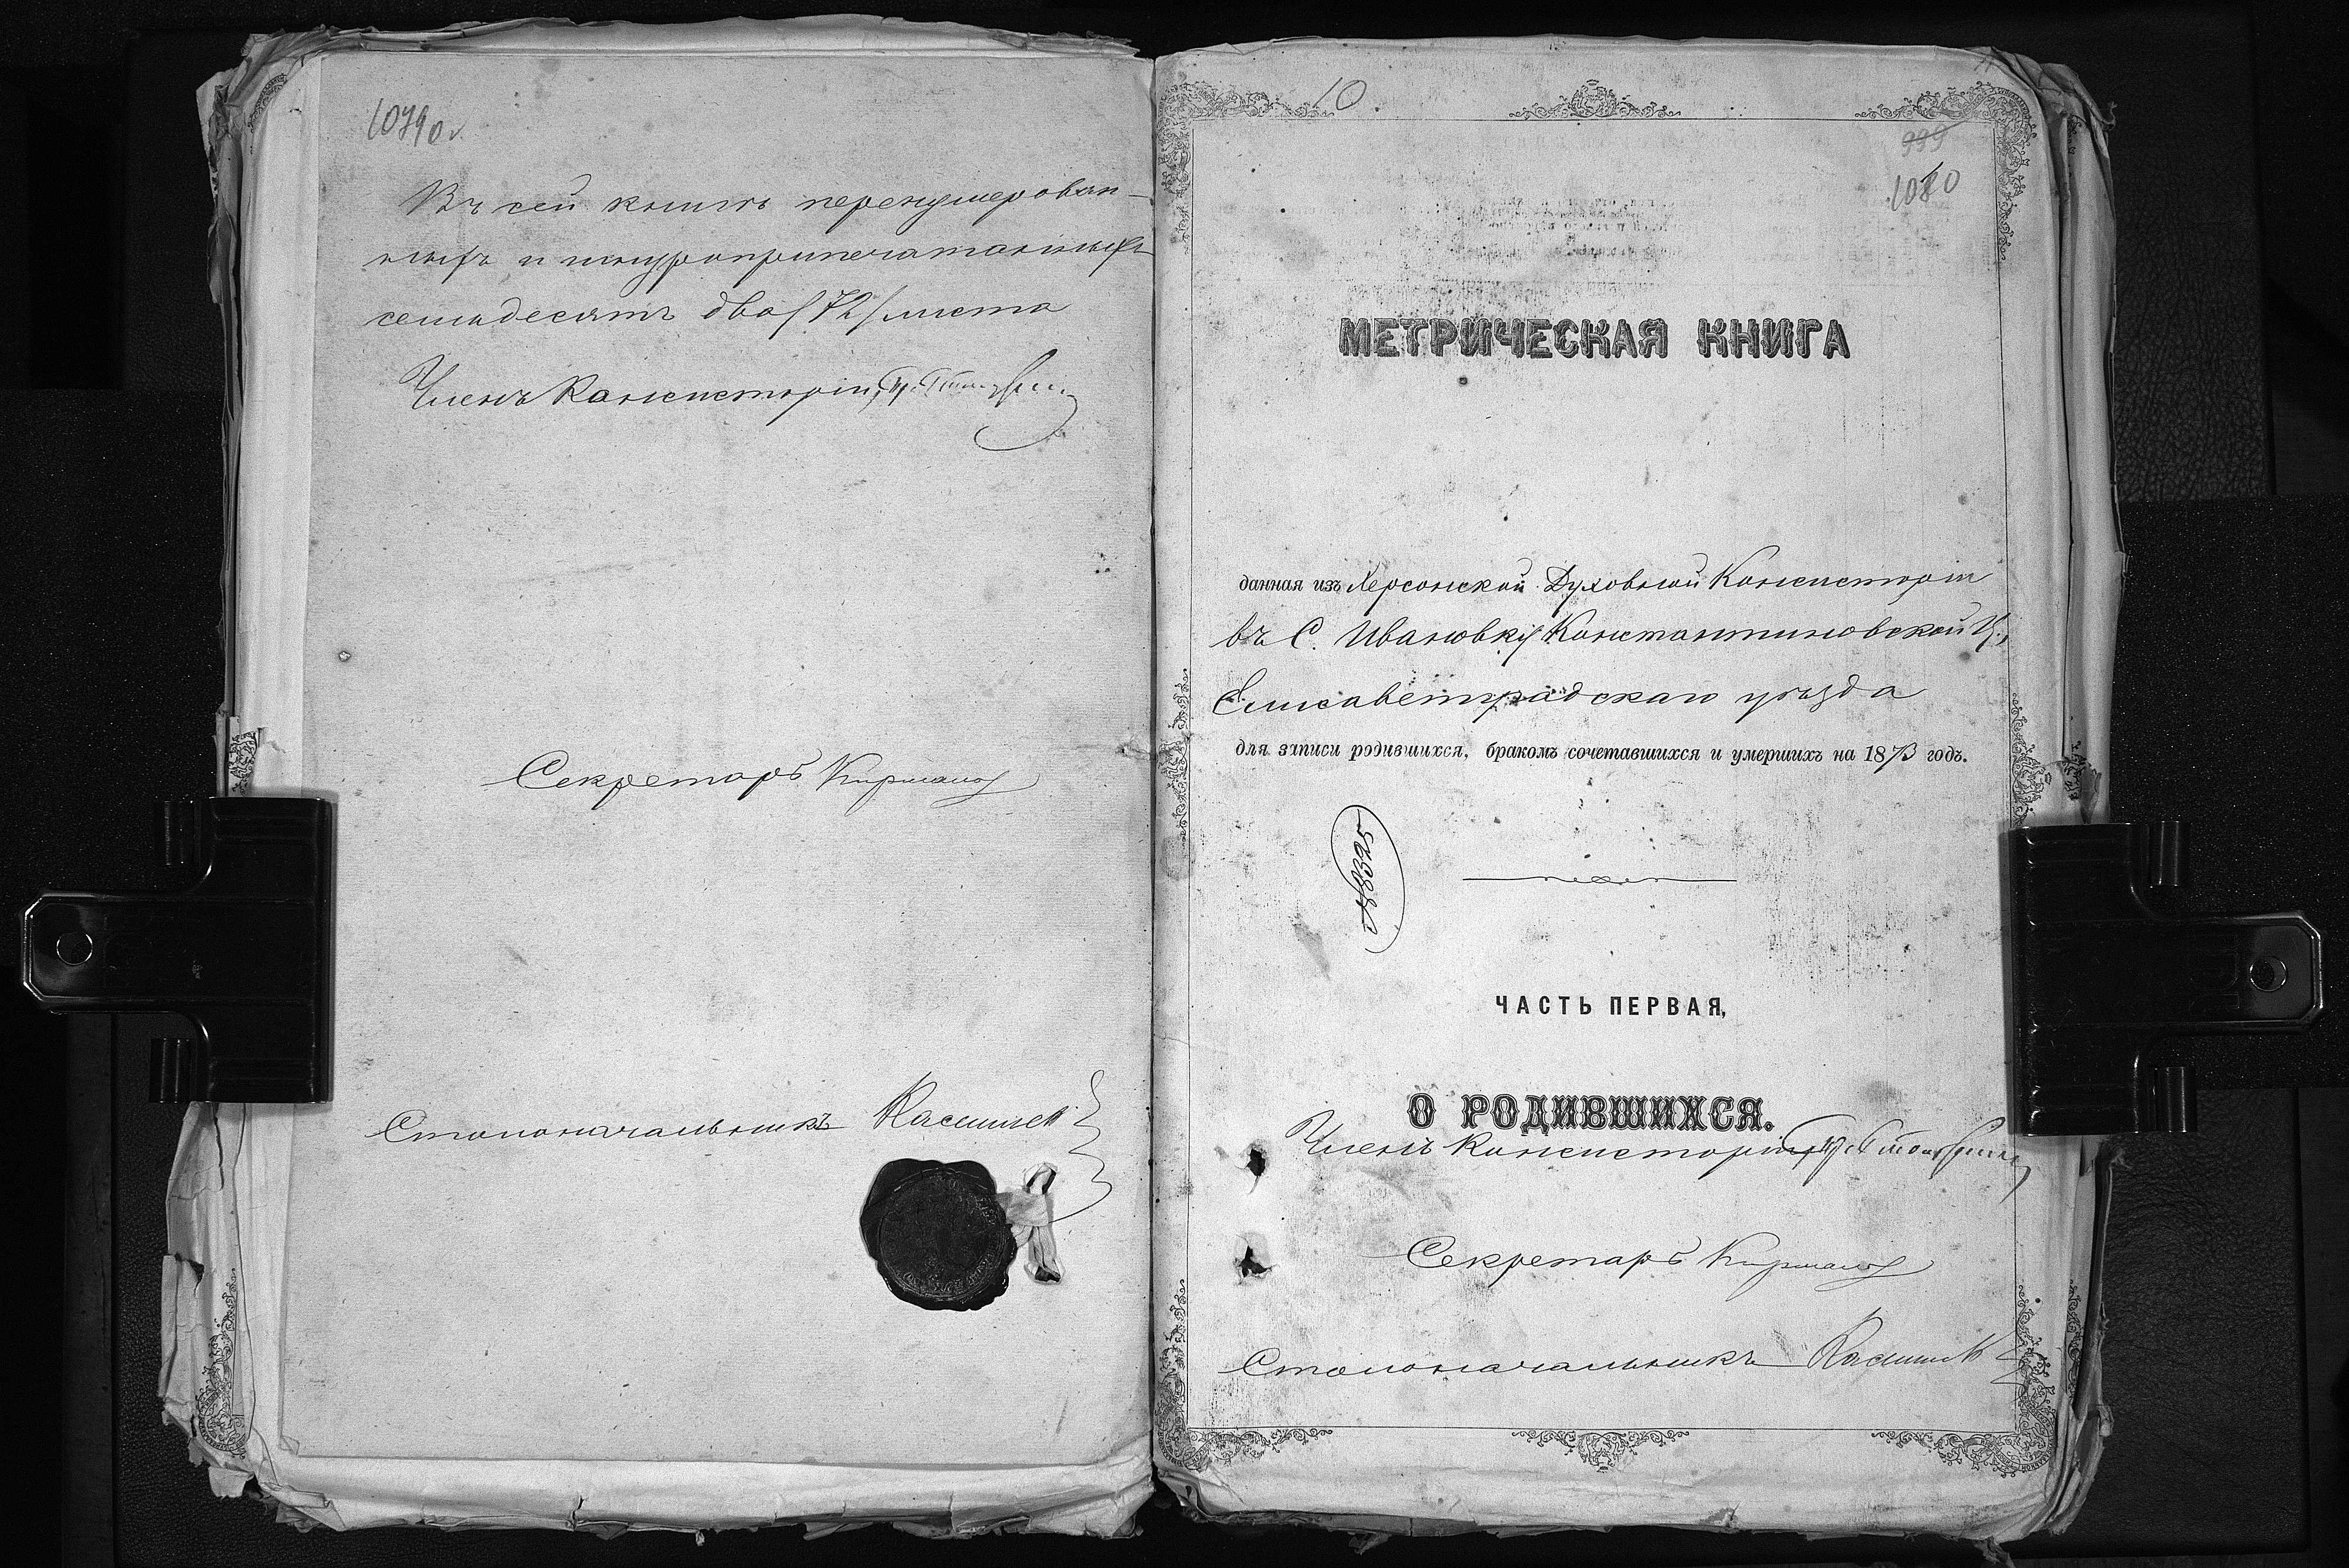 1079 об.
Въ сей книгѣ перенумерован-
ныхъ и шнуроприпечатанныхъ
семьдесятъ два /72/ листа
Членъ Консисторіи,
Секретарь
Столоначальникъ
10.
999
1080
МЕТРИЧЕСКАЯ КНИГА
данная изъ Херсонской Духовной Консисторіи
въ С. Ивановку Константиновской Ц.,
Елисаветградскаго уѣзда
для записи родившихся, бракомъ сочетавшихся и умершихъ на 1873 годъ.
№8325
ЧАСТЬ ПЕРВАЯ,
О РОДИВШИХСЯ.
Членъ Консисторіи
Секретарь
Столоначальникъ